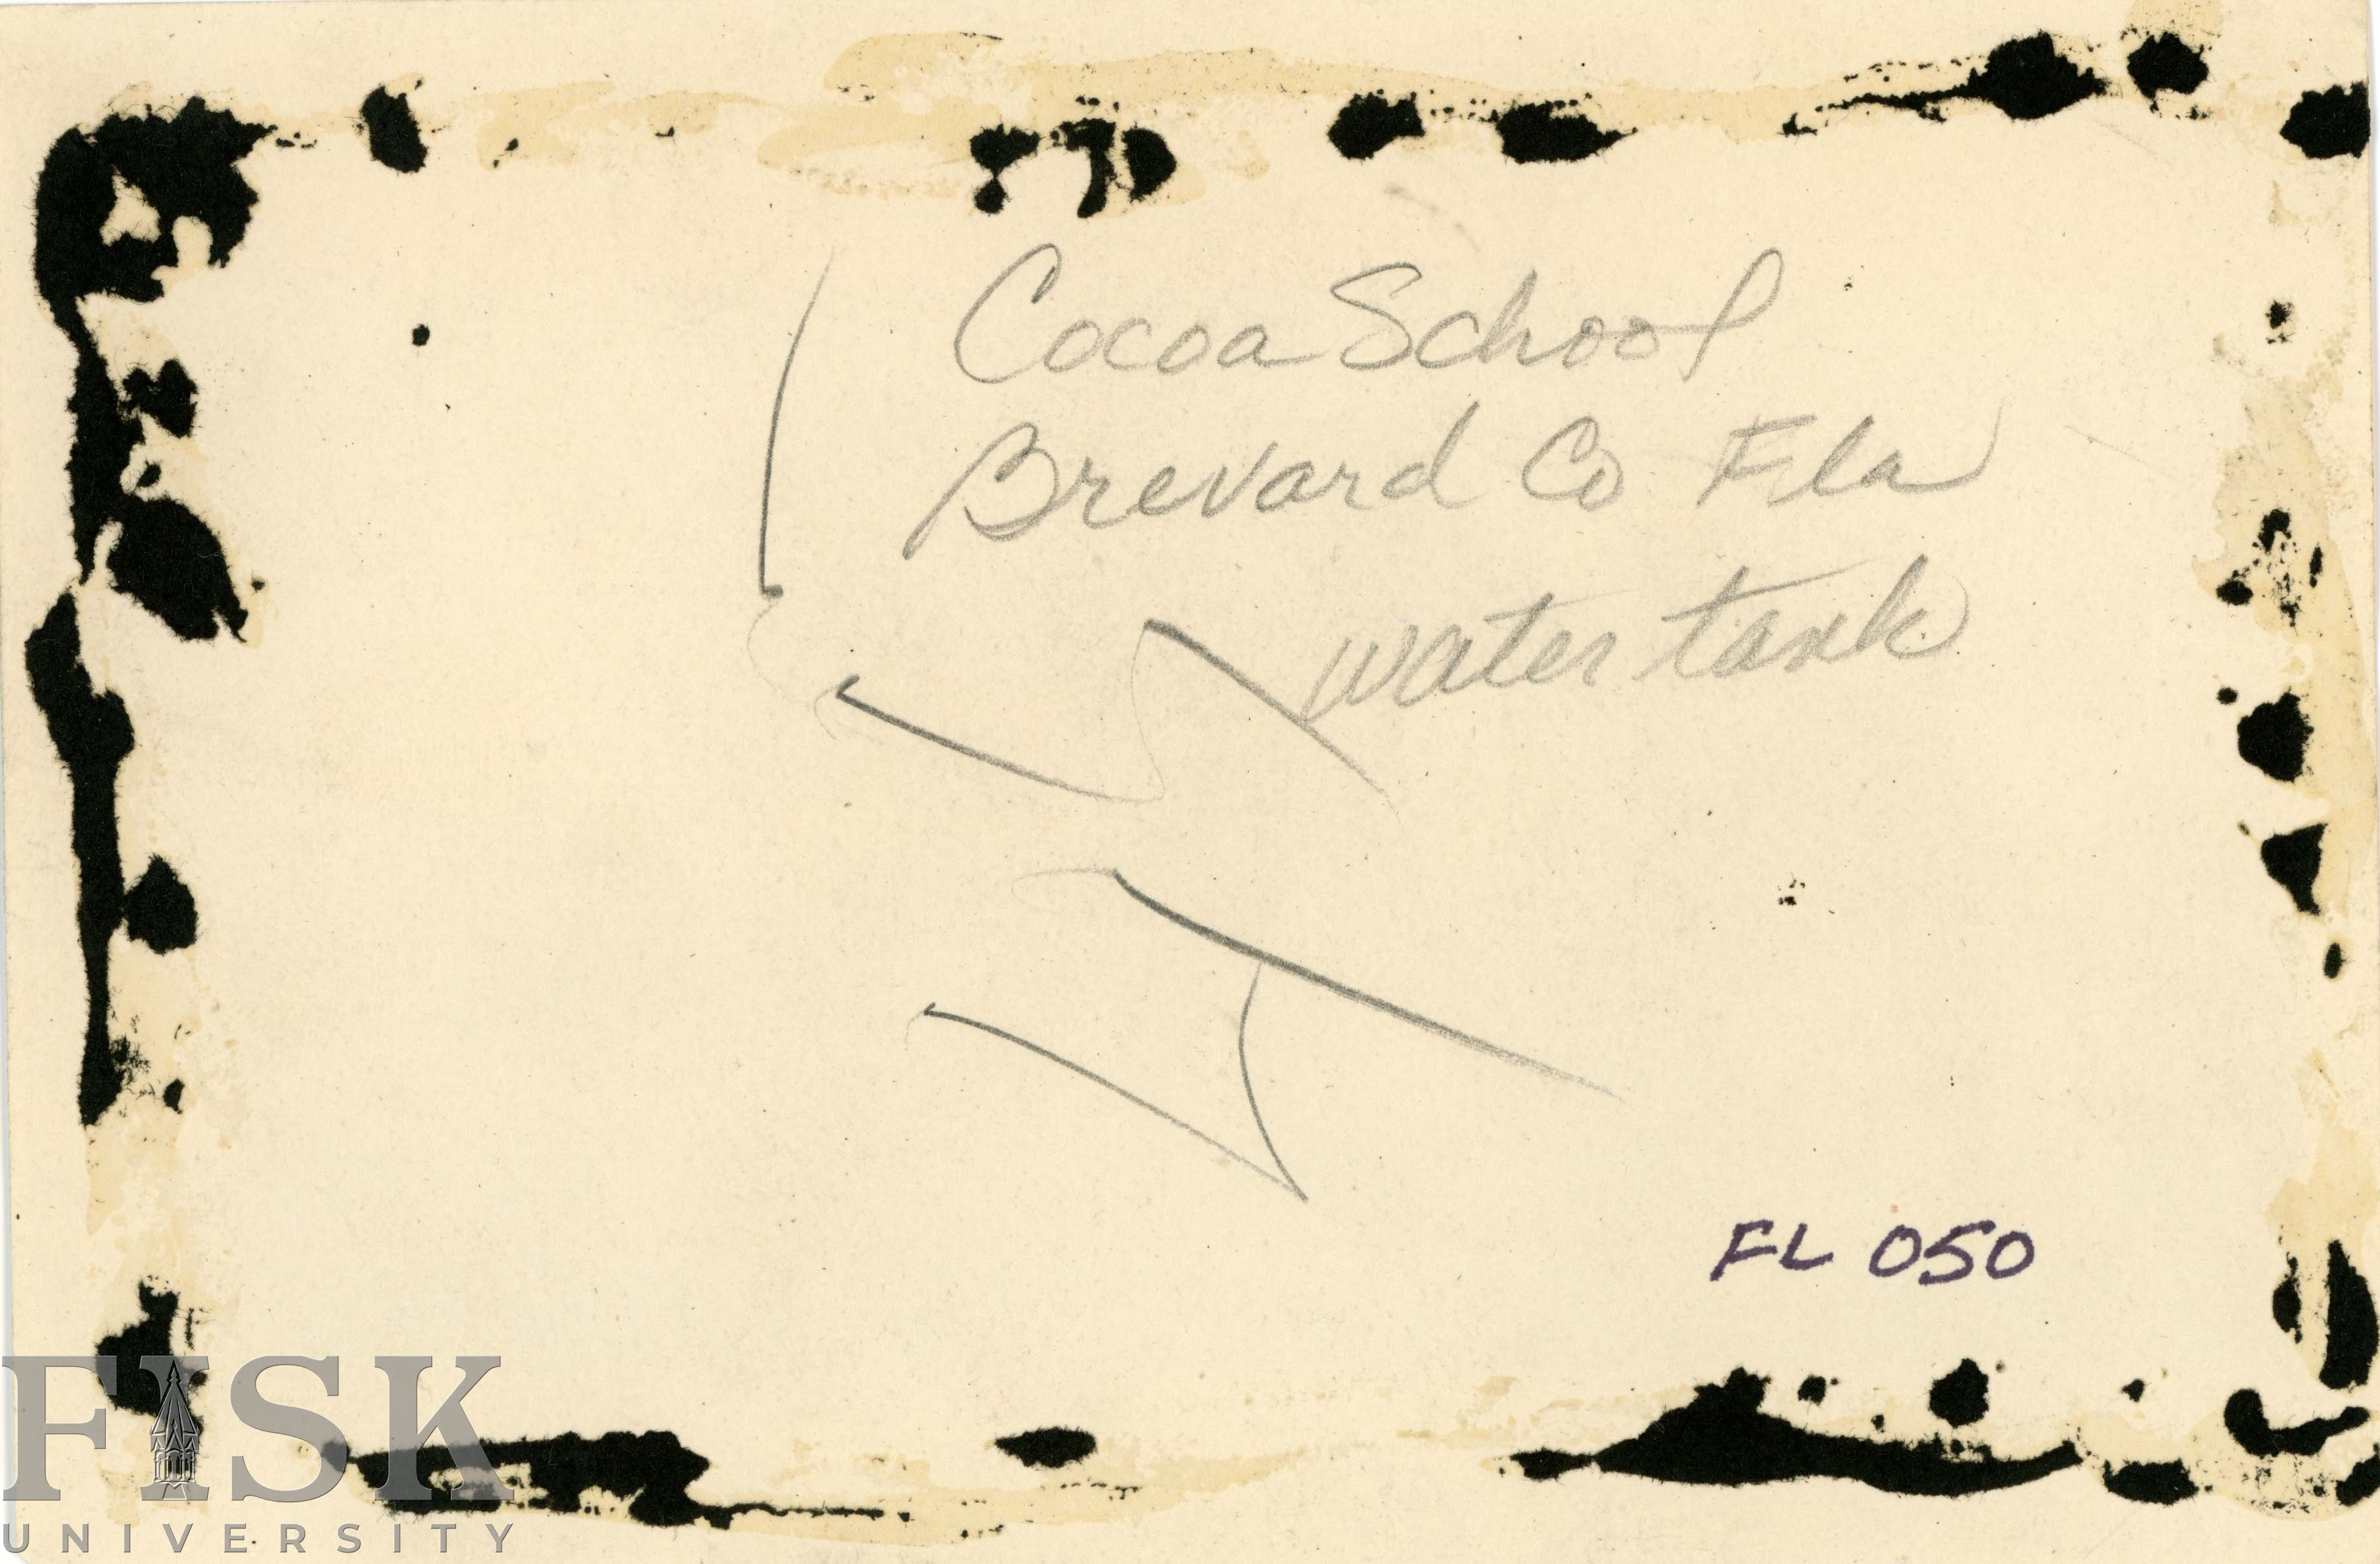 Cocoa School
Brevard Co Fla
water tank
FL 050
FISK
UNIVERSITY